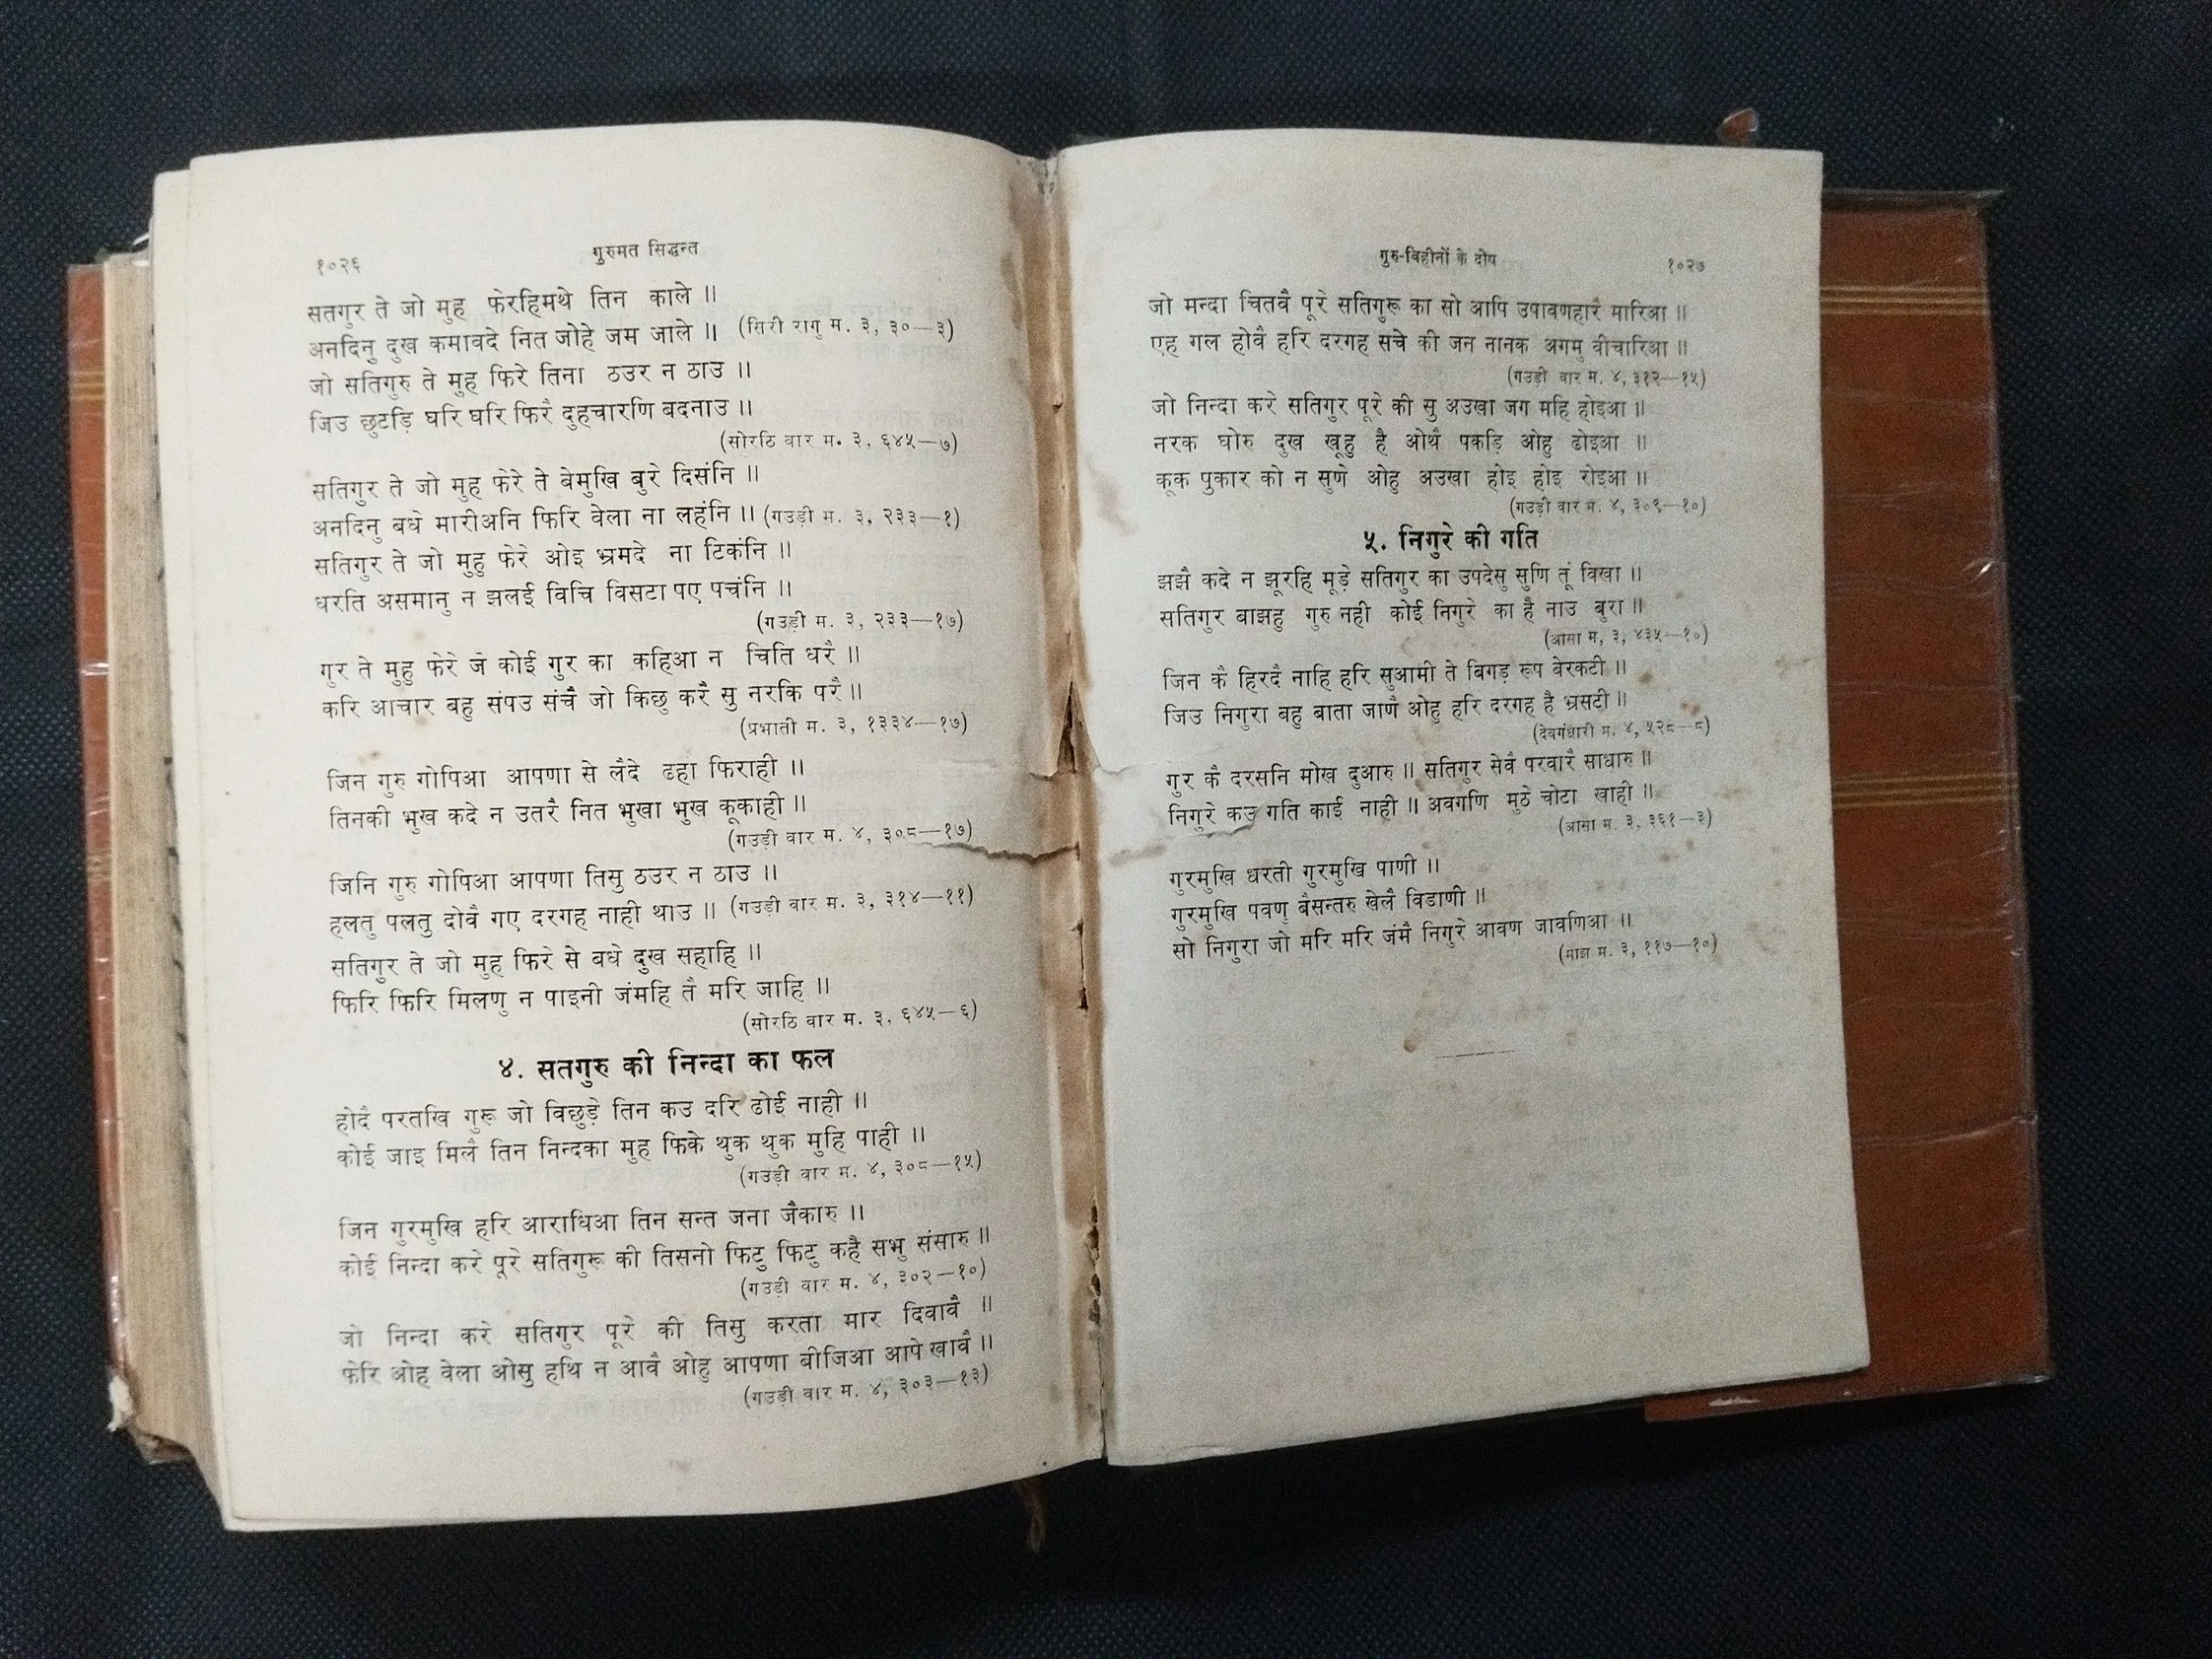 १०२६
गुरुमत सिद्धन्त
सतगुर ते जो मुह फेरहिमथे तिन काले ॥
अनदिनु दुख कमावदे नित जोहे जम जाले ॥ (सिरी रागु म. ३, ३०—३)
जो सतिगुरु ते मुह फिरे तिना ठउर न ठाउ ॥
जिउ छुटड़ि घरि घरि फिरै दुहचारणि बदनाउ ॥
(सोरठि वार म. ३, ६४५—७)
सतिगुर ते जो मुह फेरे ते बेमुखि बुरे दिसंनि ॥
अनदिनु बधे मारीअनि फिरि वेला ना लहंनि ॥ (गउड़ी म. ३, २३३—१)
सतिगुर ते जो मुहु फेरे ओइ भ्रमदे ना टिकंनि ॥
धरति असमानु न झलई विचि विसटा पए पचंनि ॥
(गउड़ी म. ३, २३३—१७)
गुर ते मुहु फेरे जे कोई गुर का कहिआ न चिति धरै ॥
करि आचार बहु संपउ संचै जो किछु करै सु नरकि परै ॥
(प्रभाती म. ३, १३३४—१७)
जिन गुरु गोपिआ आपणा से लैदे ढहा फिराही ॥
तिनकी भुख कदे न उतरै नित भुखा भुख कूकाही ॥
(गउड़ी वार म. ४, ३०८—१७)
जिनि गुरु गोपिआ आपणा तिसु ठउर न ठाउ ॥
हलतु पलतु दोवै गए दरगह नाही थाउ ॥ (गउड़ी वार म. ३, ३१४—११)
सतिगुर ते जो मुह फिरे से बधे दुख सहाहि ॥
फिरि फिरि मिलणु न पाइनी जंमहि तै मरि जाहि ॥
(सोरठि वार म. ३, ६४५—६)
४. सतगुरु की निन्दा का फल
होदै परतखि गुरू जो विछुड़े तिन कउ दरि ढोई नाही ॥
कोई जाइ मिलै तिन निन्दका मुह फिके थुक थुक मुहि पाही ॥
(गउड़ी वार म. ४, ३०८—१५)
जिन गुरमुखि हरि आराधिआ तिन सन्त जना जैकारु ॥
कोई निन्दा करे पूरे सतिगुरू की तिसनो फिटु फिटु कहै सभु संसारु ॥
(गउड़ी वार म. ४, ३०२—१०)
जो निन्दा करे सतिगुर पूरे की तिसु करता मार दिवावै ॥
फेरि ओह वेला ओसु हथि न आवै ओहु आपणा बीजिआ आपे खावै ॥
(गउड़ी वार म. ४, ३०३—१३)
गुरु-विहीनों के दोष
१०२७
जो मन्दा चितवै पूरे सतिगुरू का सो आपि उपावणहारै मारिआ ॥
एह गल होवै हरि दरगह सचे की जन नानक अगमु वीचारिआ ॥
(गउड़ी वार म. ४, ३१२—१५)
जो निन्दा करे सतिगुर पूरे की सु अउखा जग महि होइआ ॥
नरक घोरु दुख खूहु है ओथै पकड़ि ओहु ढोइआ ॥
कूक पुकार को न सुणे ओहु अउखा होइ होइ रोइआ ॥
(गउड़ी वार म. ४, ३०९—१०)
५. निगुरे की गति
झझै कदे न झूरहि मूड़े सतिगुर का उपदेसु सुणि तूं विखा ॥
सतिगुर बाझहु गुरु नही कोई निगुरे का है नाउ बुरा ॥
(आसा म, ३, ४३५—१०)
जिन कै हिरदै नाहि हरि सुआमी ते बिगड़ रूप बेरकटी ॥
जिउ निगुरा बहु बाता जाणै ओहु हरि दरगह है भ्रसटी ॥
(देवगंधारी म. ४, ५२८—८)
गुर कै दरसनि मोख दुआरु ॥ सतिगुर सेवै परवारै साधारु ॥
निगुरे कउ गति काई नाही ॥ अवगणि मुठे चोटा खाही ॥
(आसा म. ३, ३६१—३)
गुरमुखि धरती गुरमुखि पाणी ॥
गुरमुखि पवणु बैसन्तरु खेलै विडाणी ॥
सो निगुरा जो मरि मरि जंमै निगुरे आवण जावणिआ ॥
(माझ म. ३, ११७—१०)